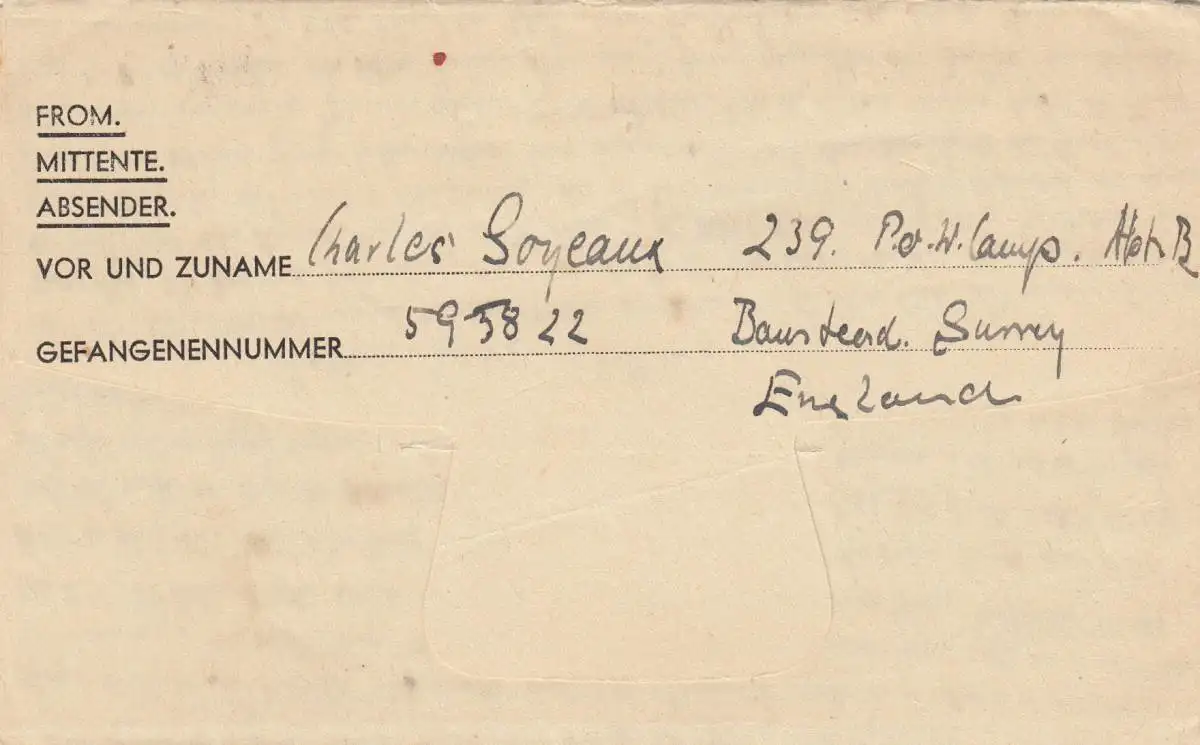 FROM.
MITTENTE.
ABSENDER.
VOR UND ZUNAME Charles Soyeaux 239. P.o.W. Camp. Hot. B
GEFANGENENNUMMER 595822
Banstead. Surrey
England